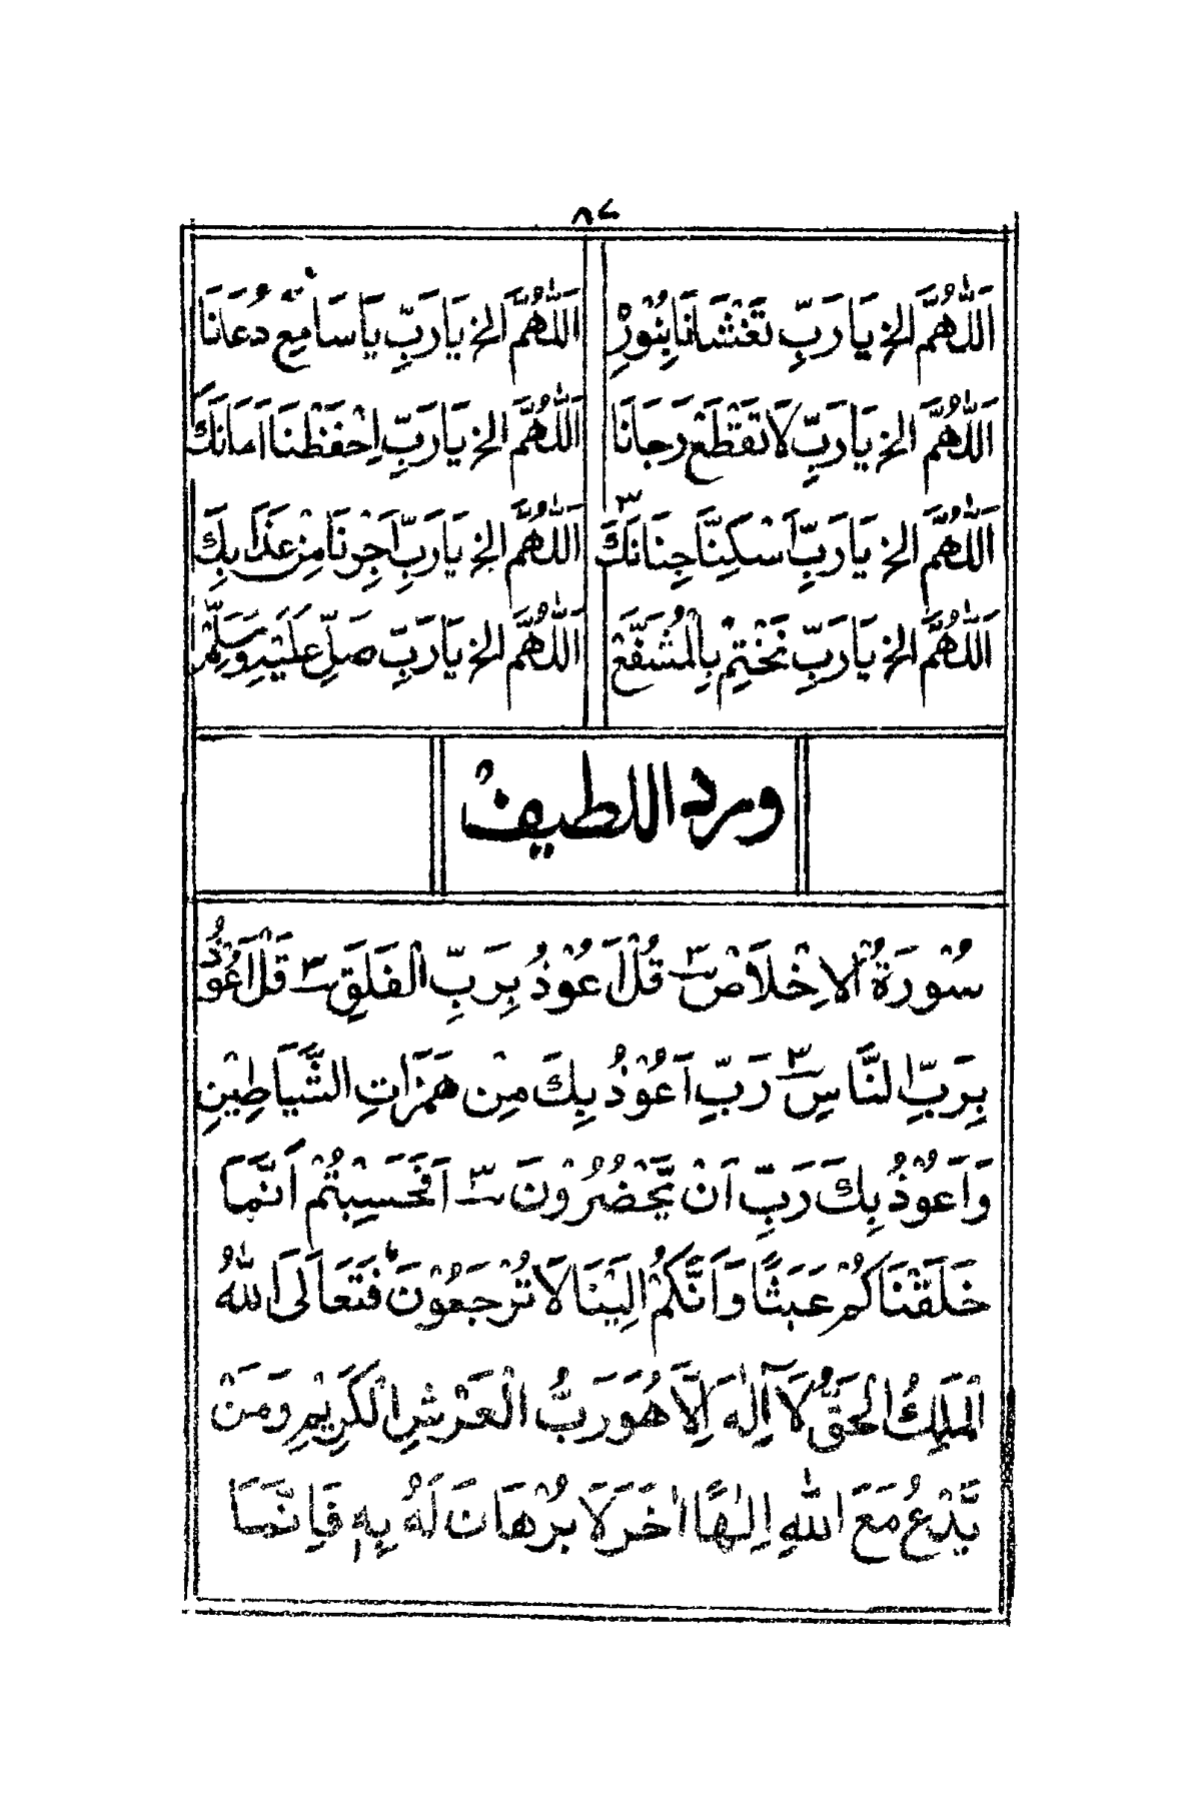 ٨٤
اَللّٰهُمَّ الخ يَا رَبِّ تَغْشَانَا بِنُوْرِ
اَللّٰهُمَّ الخ يَارَبِّ يَا سَامِعْ دُعَانَا
اَللّٰهُمَّ الخ يَا رَبِّ لَا تَقْطَعْ رَجَانَا
اَللّٰهُمَّ الخ يَارَبِّ اِحْفَظْنَا اَمَانَكَ
اَللّٰهُمَّ الخ يَا رَبِّ اَسْكِنَّا جِنَانَكَ ٣
اَللّٰهُمَّ الخ يَا رَبِّ اَجِرْنَا مِنْ عَذَابِكَ
اَللّٰهُمَّ الخ يَا رَبِّ نَخْتِمْ بِالْمُشَفَّعْ
اَللّٰهُمَّ الخ يَا رَبِّ صَلِّ عَلَيْهِ وَسَلِّمْ
ورد اللطيف
سُوْرَةُ الْاِخْلَاصْ ٣ قُلْ اَعُوْذُ بِرَبِّ الْفَلَقِ ٣ قُلْ اَعُوْذُ
بِرَبِّ النَّاسِ ٣ رَبِّ اَعُوْذُ بِكَ مِنْ هَمَزَاتِ الشَّيَاطِيْنِ
وَاَعُوْذُ بِكَ رَبِّ اَنْ يَّحْضُرُوْنَ ٣ اَفَحَسِبْتُمْ اَنَّمَا
خَلَقْنَاكُمْ عَبَثًا وَاَنَّكُمْ اِلَيْنَا لَا تُرْجَعُوْنَ فَتَعَالَى اللّٰهُ
الْمَلِكُ الْحَقُّ لَآ اِلٰهَ اِلَّا هُوَ رَبُّ الْعَرْشِ الْكَرِيْمِ وَمَنْ
يَّدْعُ مَعَ اللّٰهِ اِلٰهًا اٰخَرَ لَا بُرْهَانَ لَهُ بِهٖ فَاِنَّمَا